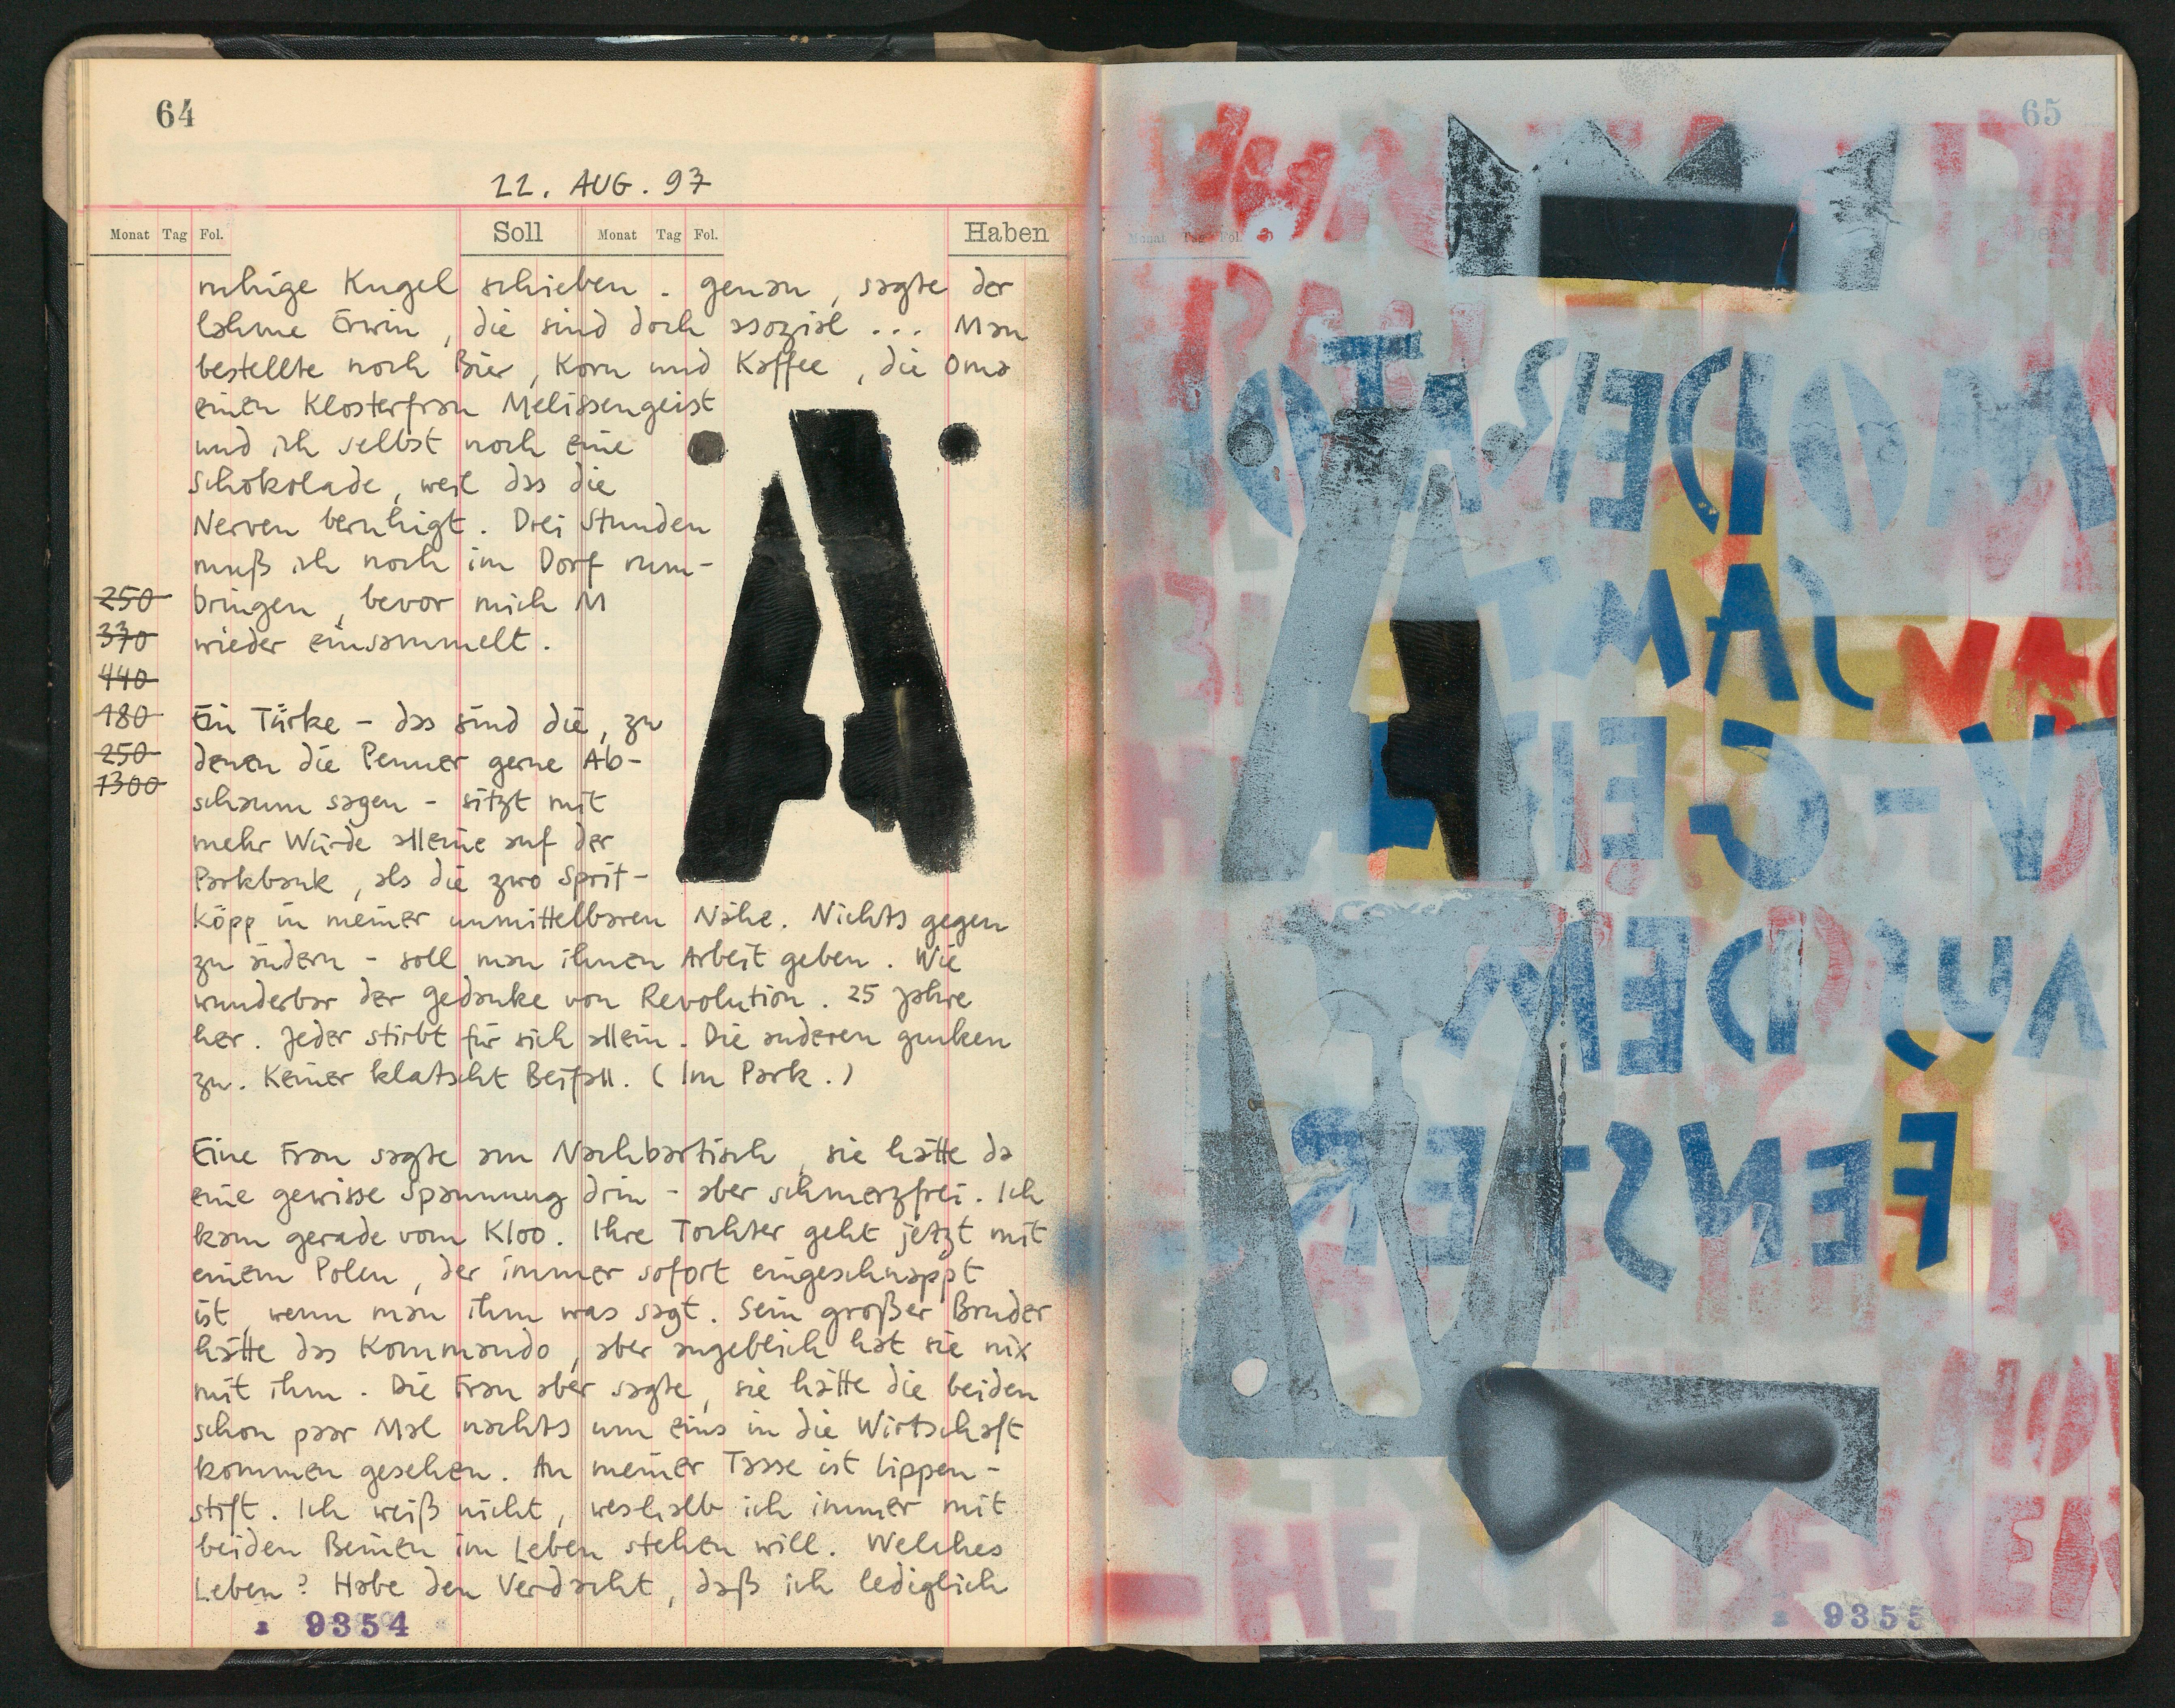 64
22. AUG. 97
Monat Tag Fol. Soll Monat Tag Fol. Haben
ruhige Kugel schieben. genau, sagte der
lahme Erwin, die sind doch asozial ... Man
bestellte noch Bier, Korn und Kaffee, die Oma
einen Klosterfrau Melissengeist
und ich selbst noch eine
Schokolade, weil das die
Nerven beruhigt. Drei Stunden
muß ich noch im Dorf rum-
bringen, bevor mich M
wieder einsammelt.
250
330
440
180
250
1300
Ein Türke - das sind die, zu
denen die Penner gerne Ab-
schaum sagen - sitzt mit
mehr Würde alleine auf der
Parkbank, als die zwo Sprit-
köpp in meiner unmittelbaren Nähe. Nichts gegen
zu ändern - soll man ihnen Arbeit geben. Wie
wunderbar der Gedanke von Revolution. 25 Jahre
her. Jeder stirbt für sich allein. Die anderen gucken
zu. Keiner klatscht Beifall. (Im Park.)
Eine Frau sagte am Nachbartisch, sie hätte da
eine gewisse Spannung drin - aber schmerzfrei. Ich
kam gerade vom Kloo. Ihre Tochter geht jetzt mit
einem Polen, der immer sofort eingeschnappt
ist, wenn man ihm was sagt. Sein großer Bruder
hätte das Kommando, aber angeblich hat sie nix
mit ihm. Die Frau aber sagte, sie hätte die beiden
schon paar Mal nachts um eins in die Wirtschaft
kommen gesehen. An meiner Tasse ist Lippen-
stift. Ich weiß nicht, weshalb ich immer mit
beiden Beinen im Leben stehen will. Welches
Leben? Habe den Verdacht, daß ich lediglich
9354
A
65
Monat Tag Fol.
SAMT
AUS DEM
FENSTER
9355